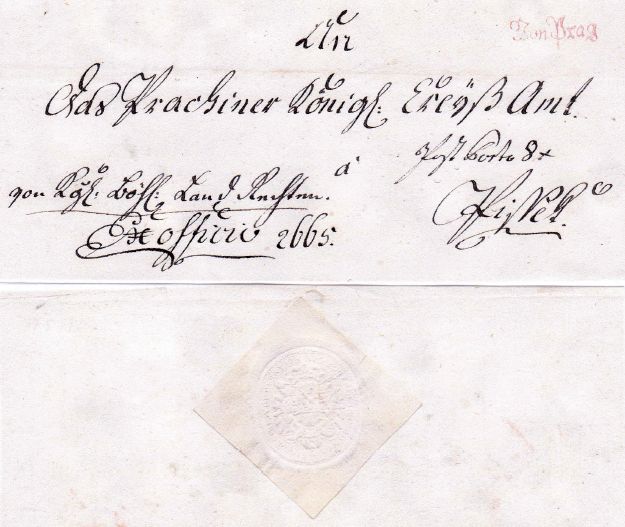 Von Prag
An
Das Prachiner Königl: Creyß Amt.
Post Porto 8 x
von Kgl: Böhl: Land Rechten.
à
Pissek.
Ex officio 2665.